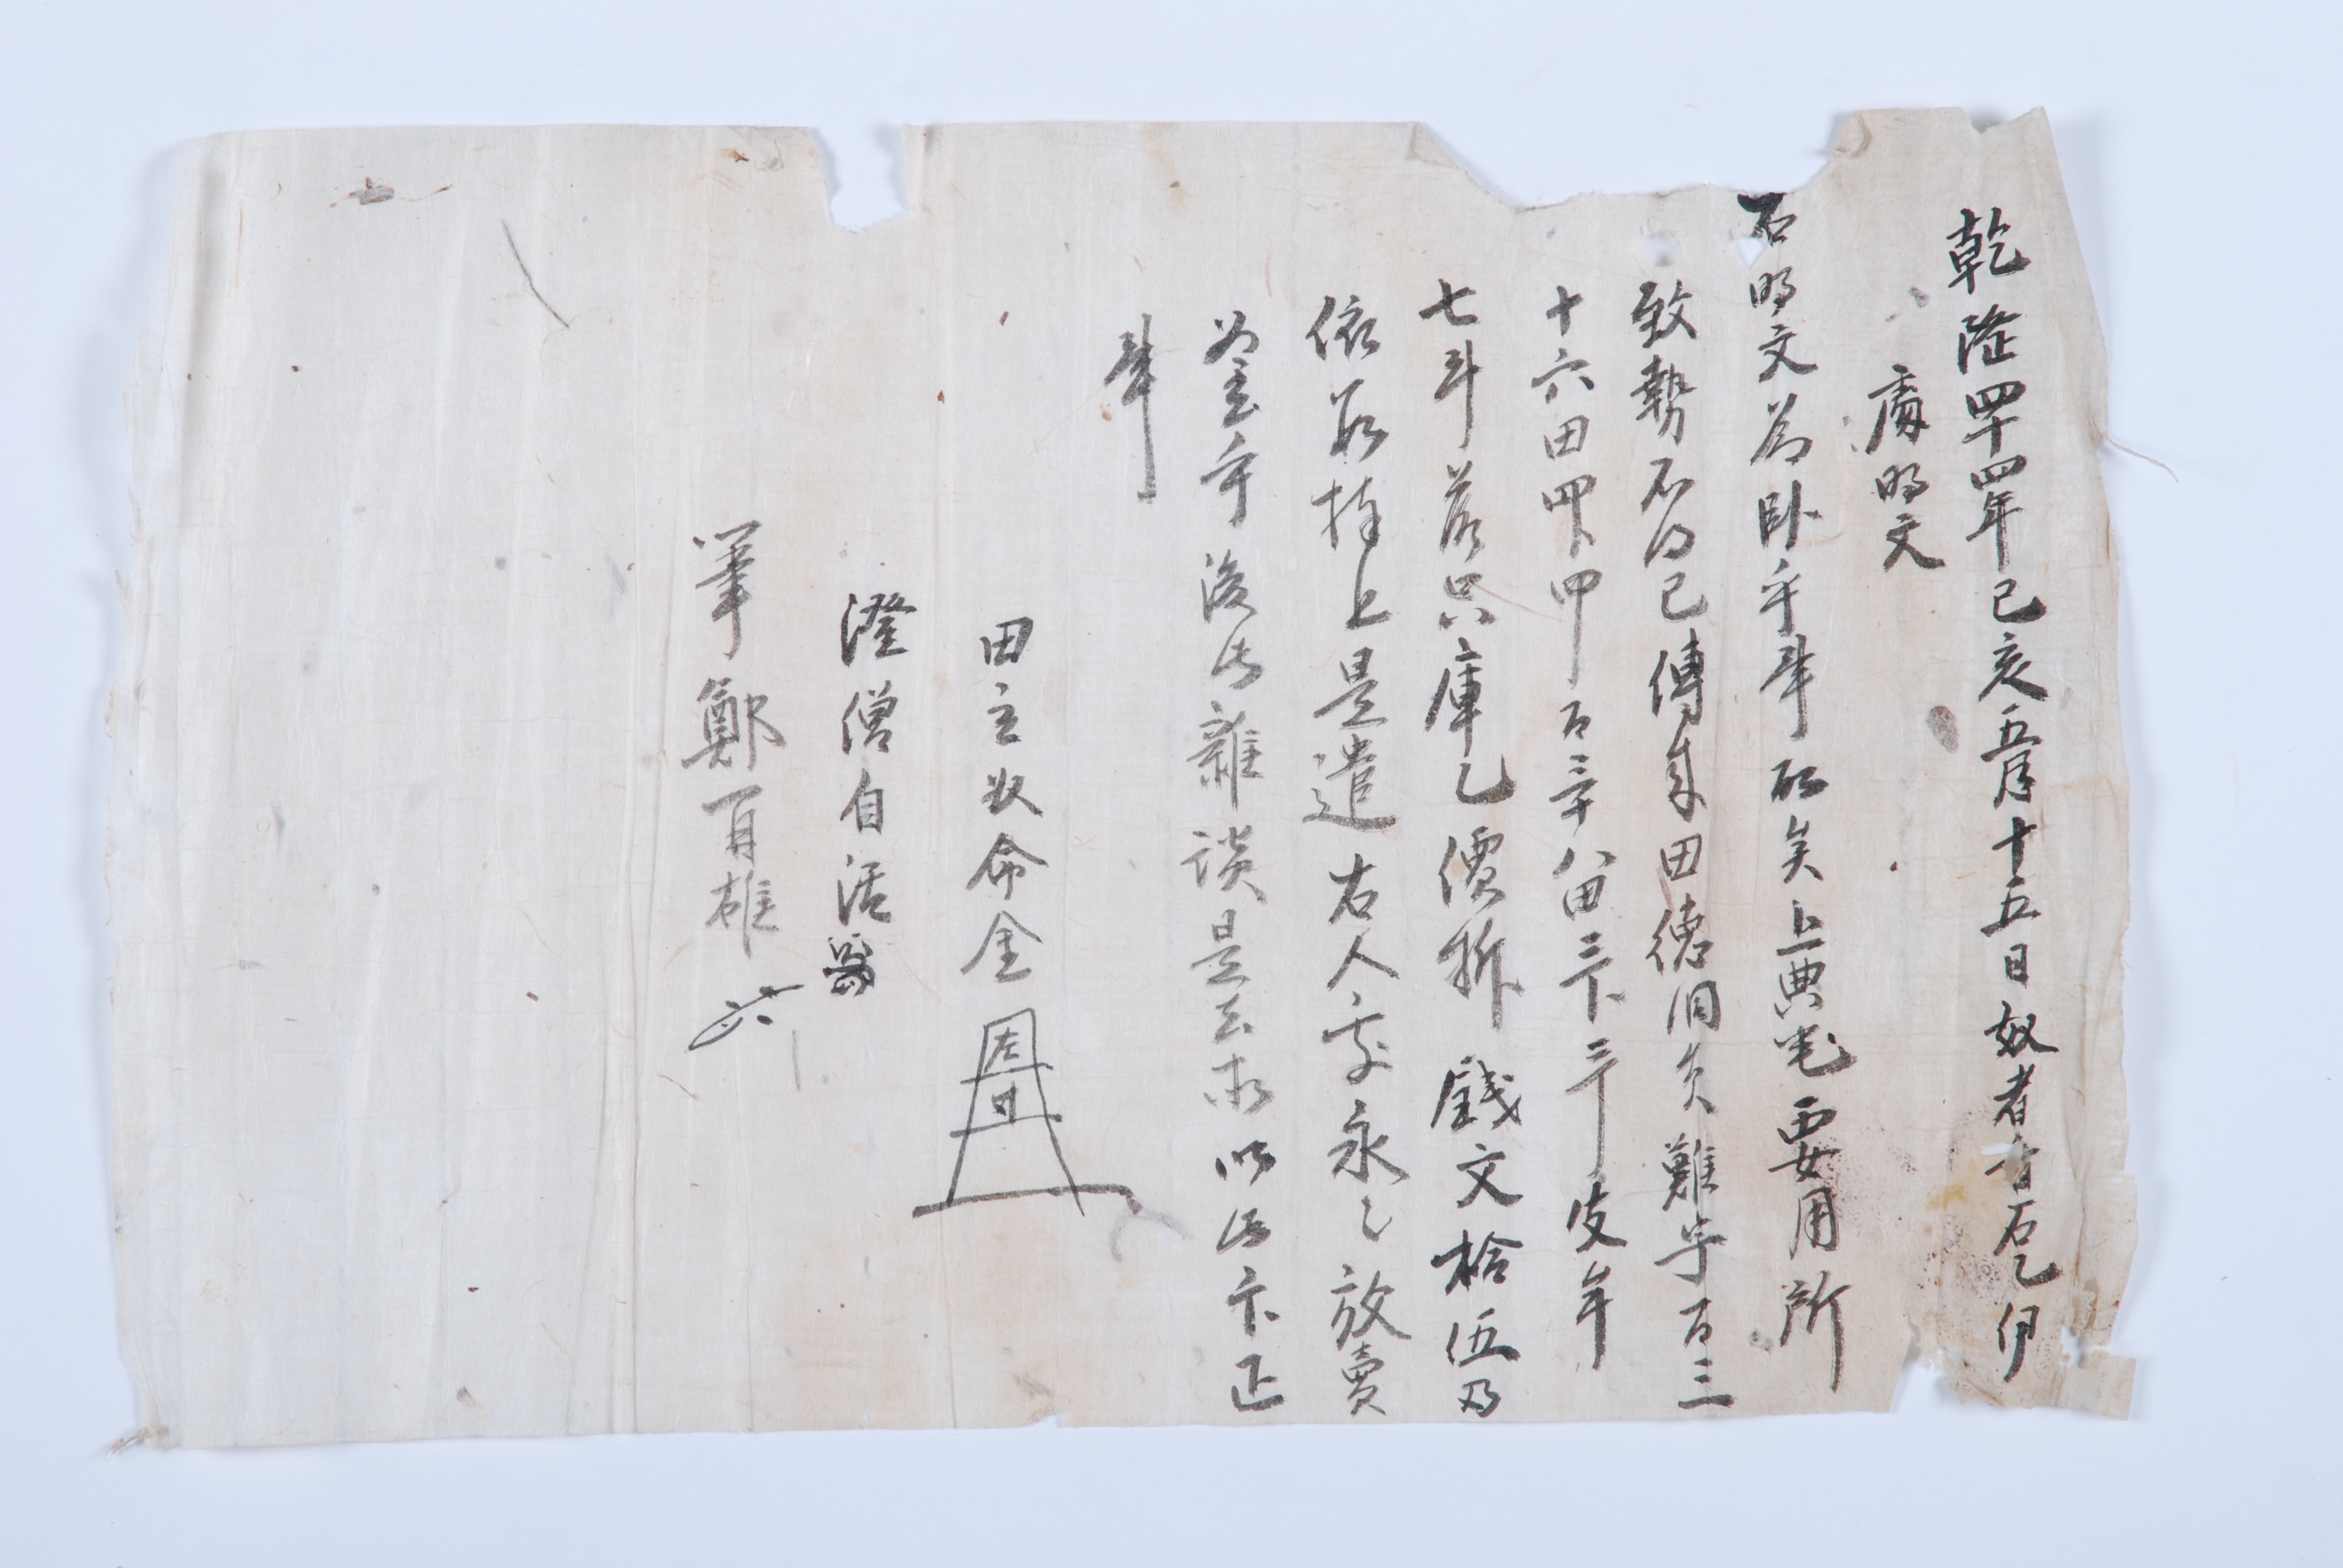 乾隆四十四年己亥五月十五日奴者音石乙伊
處明文
右明文爲臥乎事段矣上典宅要用所
致勢不得已傳來田德洞員難字百三
十六田四卜甲百三十八田三卜三
七斗落只庫乙價折錢文拾伍
依數捧上是遣右人處永〻放賣
爲去乎後出雜談是去等以此卞正
事
田主奴命金
證僧自活
筆鄭雄